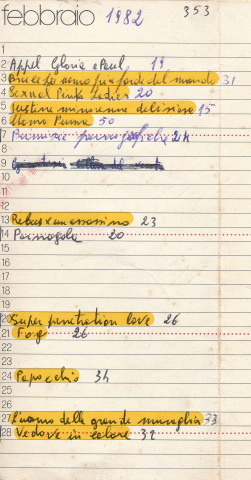 febbraio 1982 353
1
2 Appel Gloria e Paul, 19
3 Braccio uomo più forte del mondo 31
4 Sexual Pink Ladies 20
5 Justine minorenne deliziosa 15
6 Uomo Puma 50
7 Pornografiche 24
8
9
10
11
12
13 Rebus x un assassinio 23
14 Pornogola 20
15
16
17
18
19
20 Super penetration love 26
21 Fog 26
22
23
24 Papocchio 34
25
26
27 L'uomo della grande muraglia 33
28 Vedove in calore 32